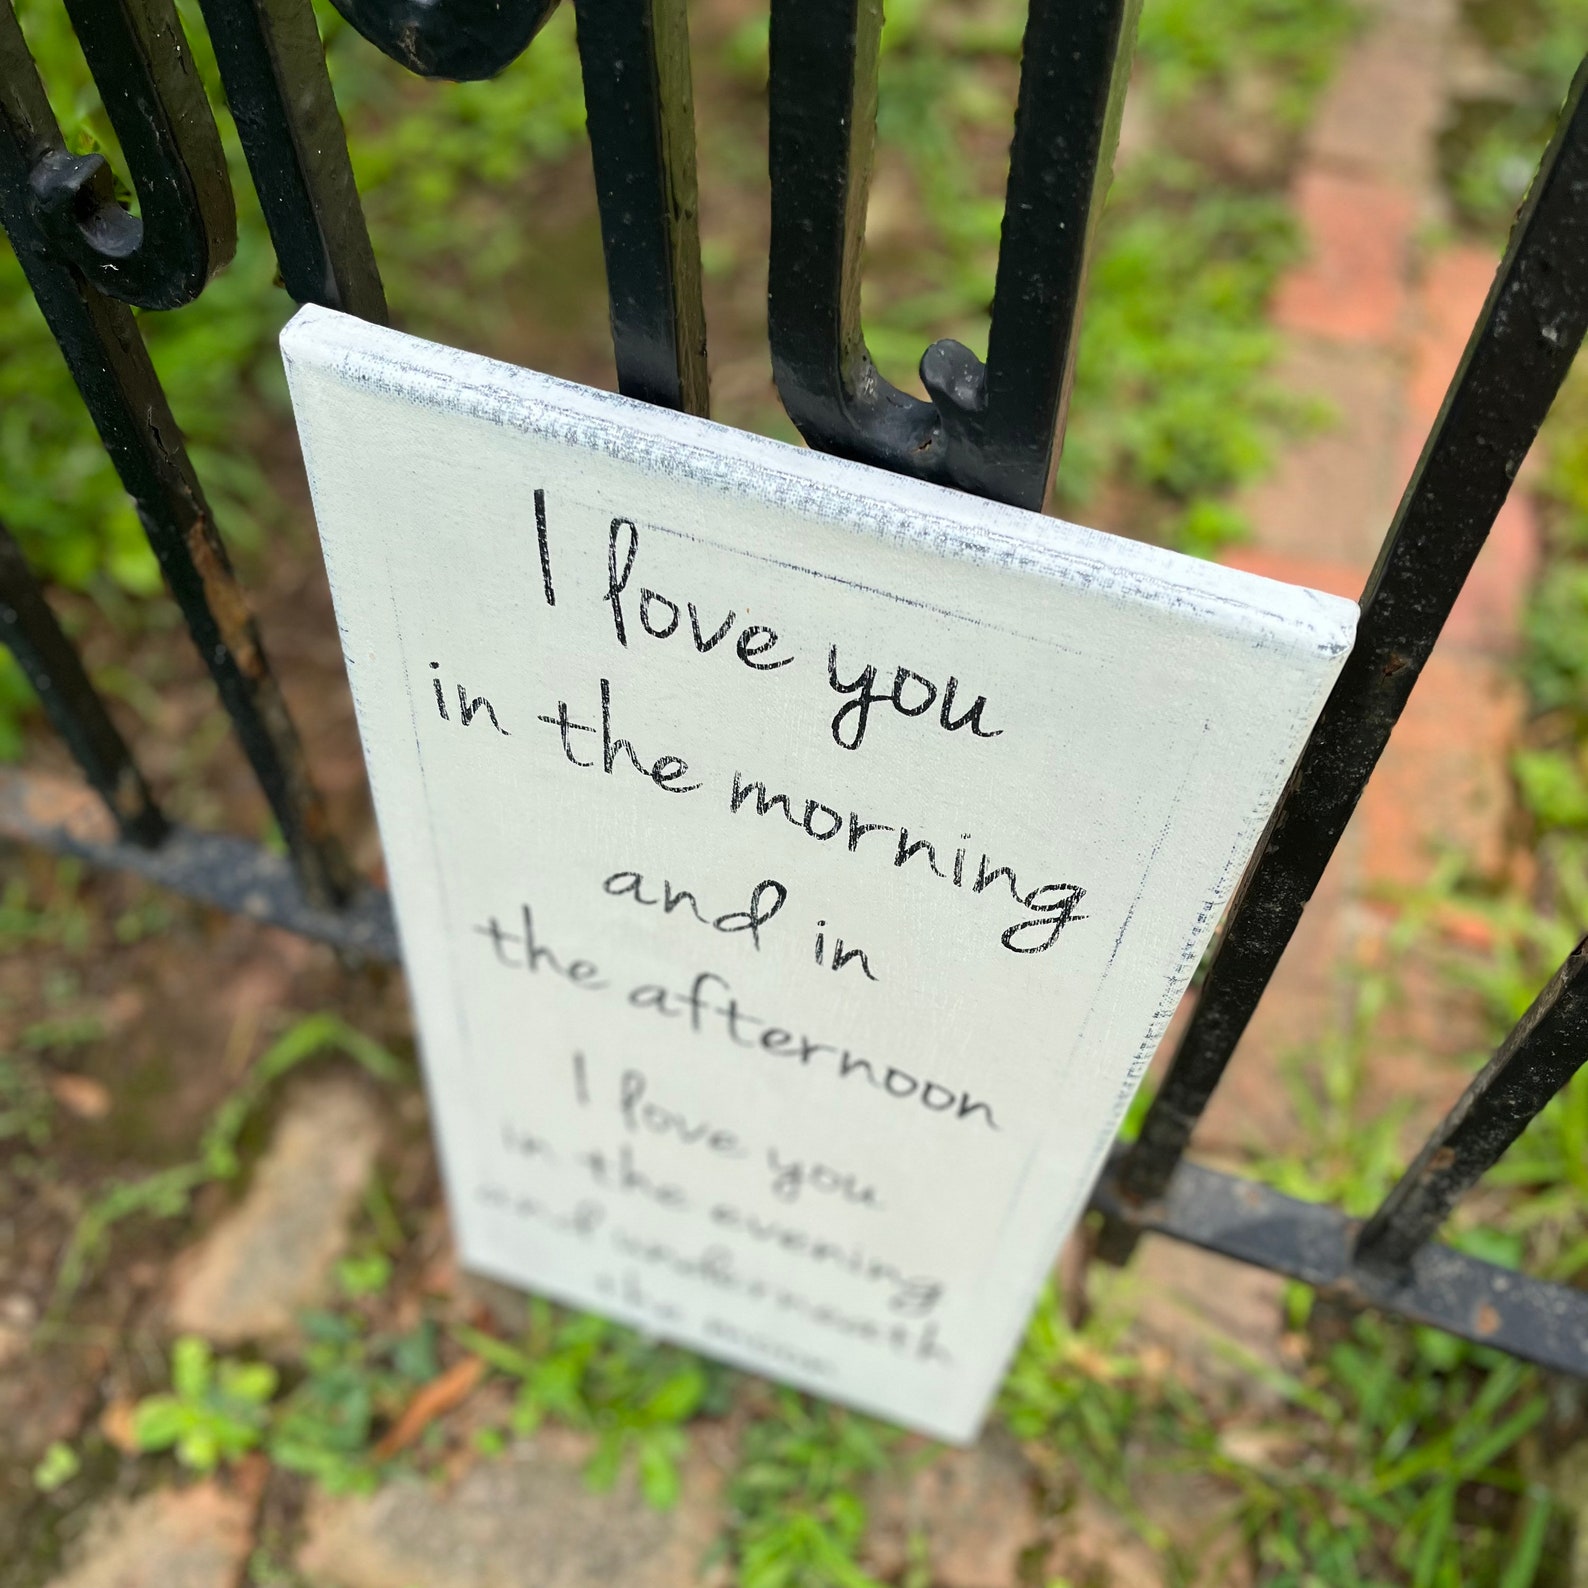 I love you
in the morning
and in
the afternoon
I love you
in the evening
and underneath
the moon